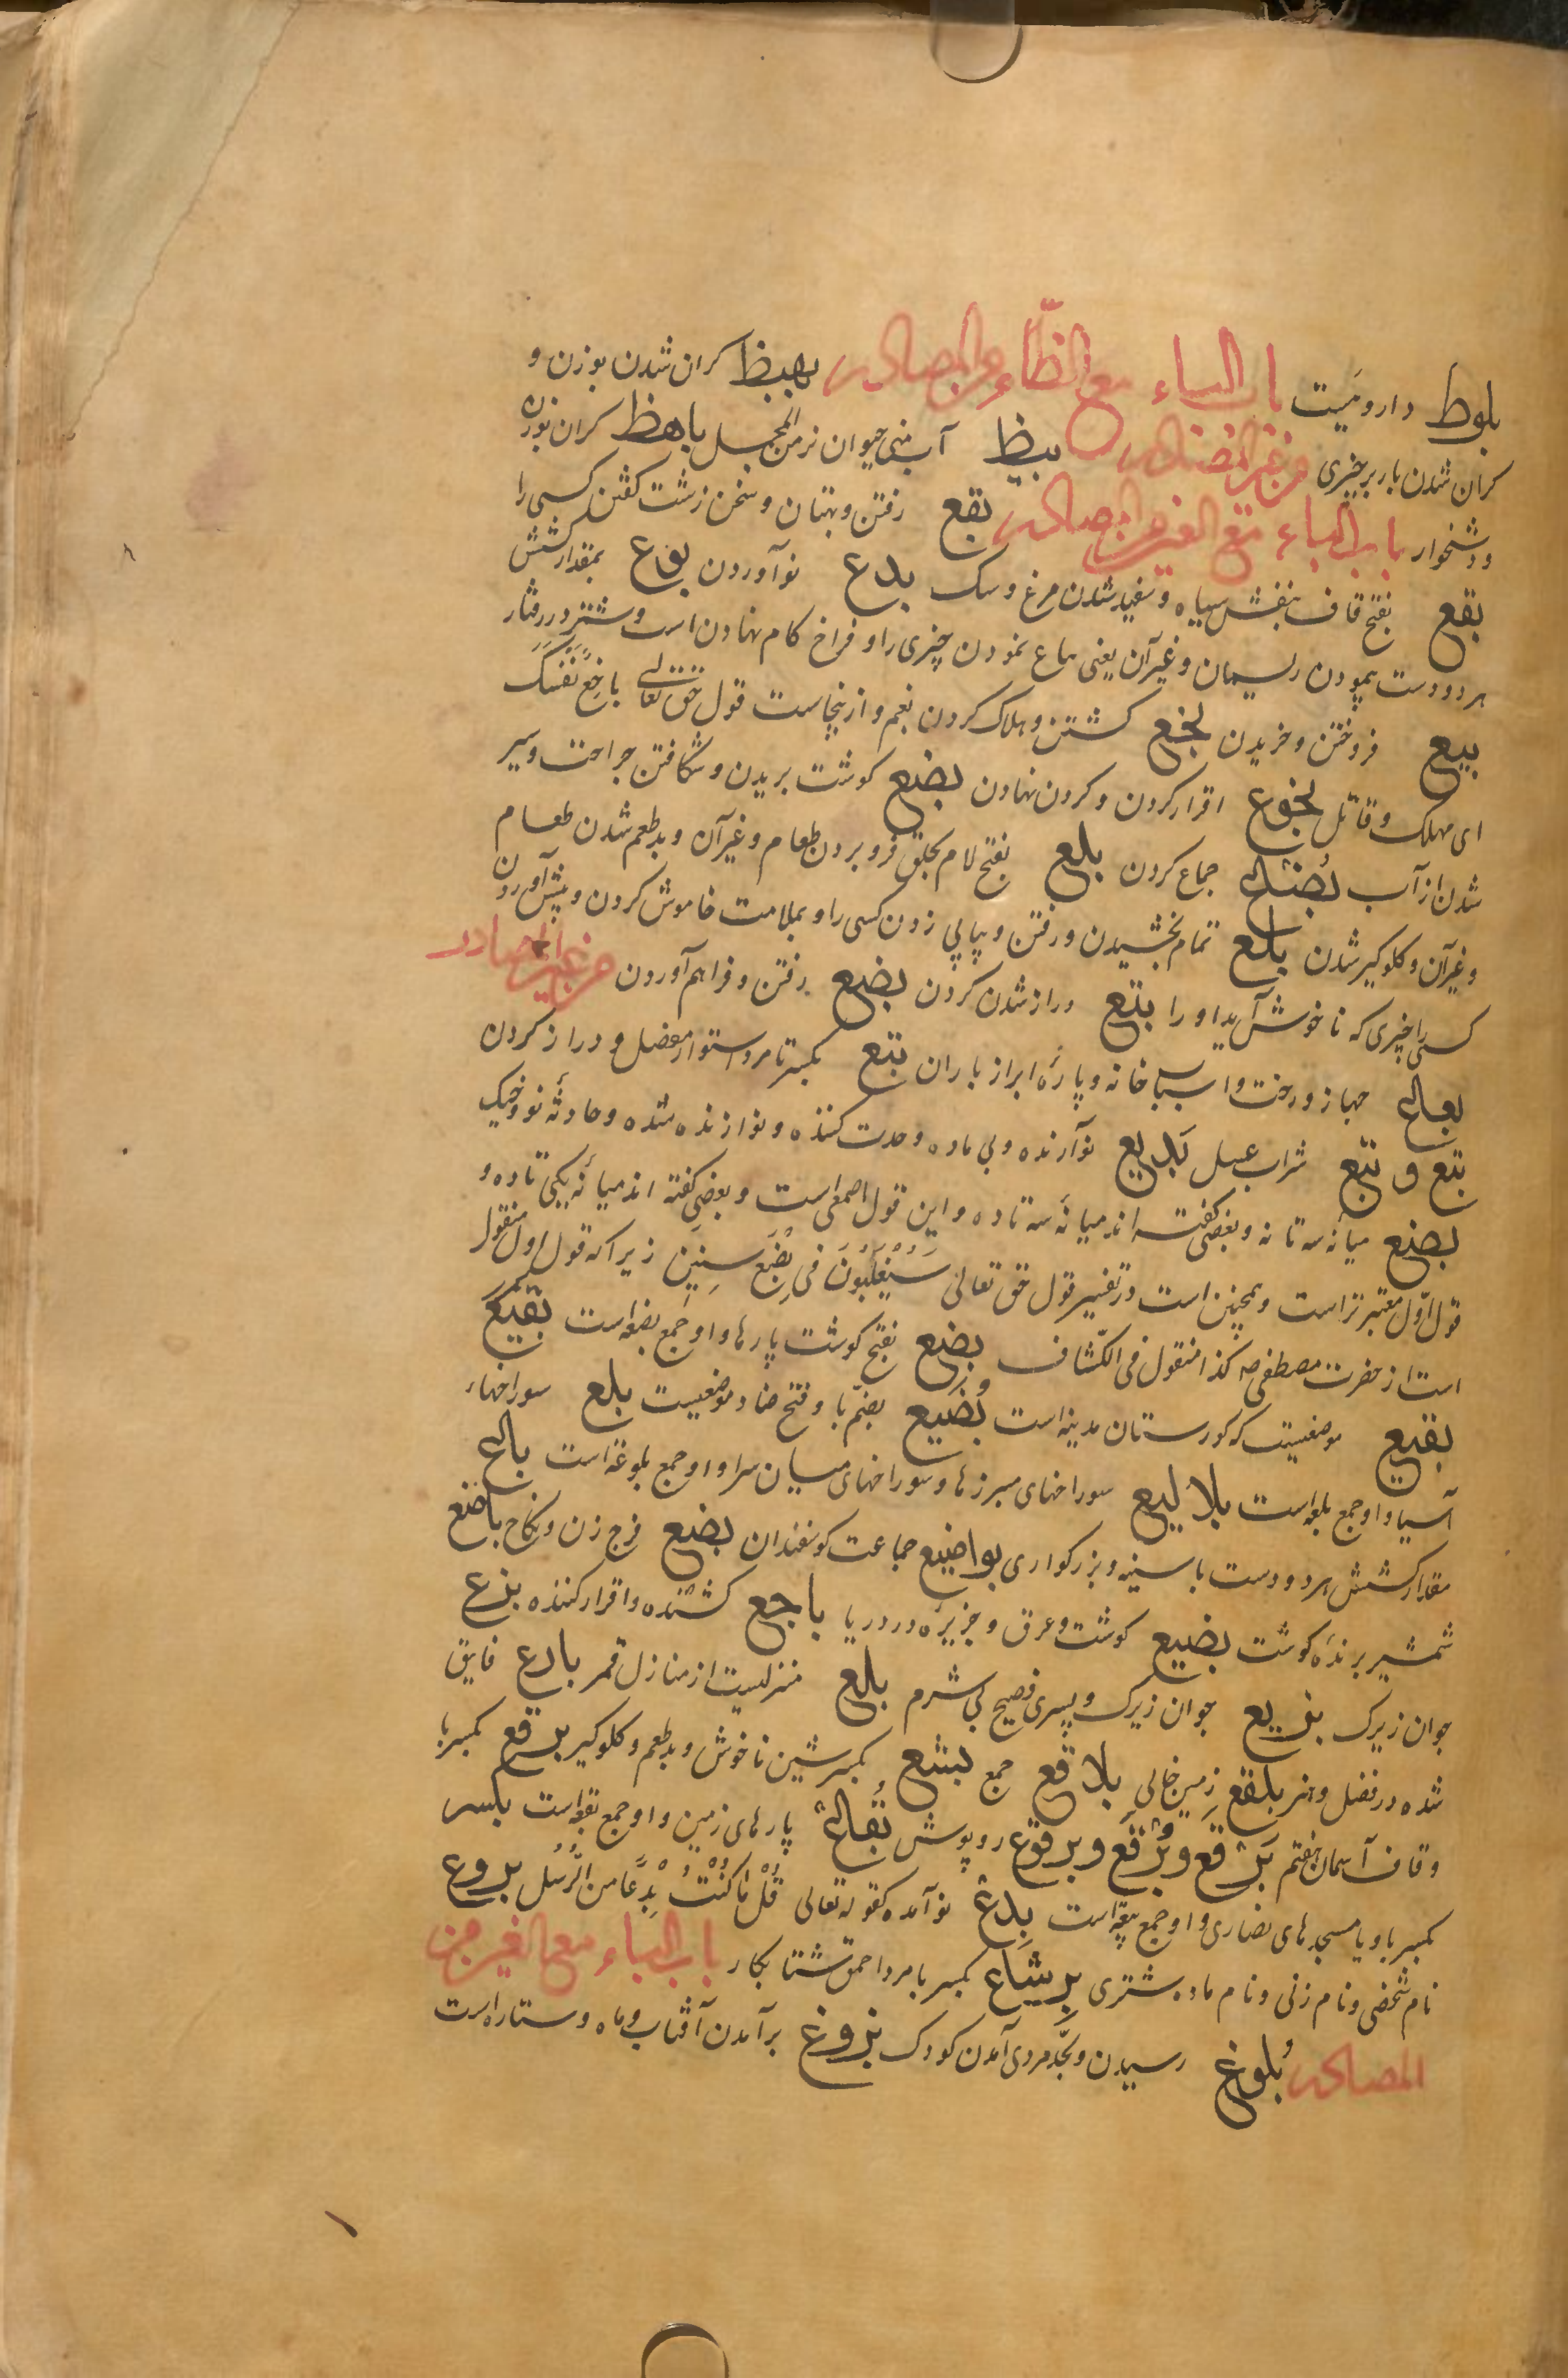 بلوط داروئیست باب الباء مع الظاء من المصادر بهیظ کران شدن بوزن و
کران شدن بار بر چیزی من غیر المصادر بیظ آب منی حیوان نر من المجمل باهظ کران بوزن
و دشخوار باب الباء مع العین من المصادر بقع رفتن و بهتان و سخن زشت کفتن کسی را
بقع بفتح قاف بنفش سیاه و سفید شدن مرغ و سک بدع نو آوردن بوع بمقدار کشش
هر دو دست پیمودن ریسمان و غیر آن یعنی باع نمودن چیزی را و فراخ کام نهادن اسب و شتر در رفتار
بیع فروختن و خریدن بخع کشتن و هلاک کردن بغم و ازینجاست قول حق تعالی باخع نفسک
ای مهلک و قاتل بخوع اقرار کردن و کردن نهادن بضع کوشت بریدن و شکافتن جراحت و سیر
شدن از آب بضاع جماع کردن بلع بفتح لام بحلق فرو بردن طعام و غیر آن و بد طعم شدن طعام
و غیر آن و کلوکیر شدن بلع تمام بخشیدن و رفتن و پیاپی زدن کسی را و بملامت خاموش کردن و پیش آوردن
کسی را چیزی که ناخوش آید او را بتع دراز شدن کردن بضع رفتن و فراهم آوردن من غیر المصادر
بعاع جهاز و رخت و اسباب خانه و پارهٔ ابر از باران بتع بکسر تا مرد استوار مفصل و دراز کردن
بتع و بتع شراب عسل بدیع نو آرنده و بی ماده و مدت کننده و نو ازنده شده و حادثهٔ نو و خیک
بضع میانهٔ سه تا نه و بعضی کفته اند میانهٔ سه تا ده و این قول اصمعی است و بعضی کفته اند میانهٔ یکی تا ده و
قول اول معتبرتر است و همچنین است در تفسیر قول حق تعالی سیغلبون فی بضع سنین زیرا که قول اول منقول
است از حضرت مصطفی صه کذا منقول فی الکشاف بضع بفتح کوشت پارها و او جمع بضعه است بقیع
بقیع موضعیست که کورستان مدینه است بضیع بضم با و فتح ضاد موضعیست بلع سوراخهاء
آسیا و او جمع بلعه است بلالیع سوراخهای مبرزها و سوراخهای میان سرا و او جمع بلوعه است باع
مقدار کشش هر دو دست با سینه و بزرکواری بواضیع جماعت کوسفندان بضع فرج زن و نکاح باضع
شمشیر برندهٔ کوشت بضیع کوشت و عرق و جزیره در دریا باجع کشنده و اقرار کننده بزع
جوان زیرک بزیع جوان زیرک و پسری فصیح بی شرم بلع منزلیست از منازل قمر بارع فایق
شده در فضل و هنر بلقع زمین خالی بلاقع جمع بشع بکسر شین ناخوش و بد طعم و کلوکیر برقع بکسر با
و قاف آسمان هفتم برقع و برقع و برقوع روپوش بقاع پارهای زمین و او جمع بقعه است
بکسر با و یا مسجدهای نصاری و او جمع بیعه است بدع نو آمده کقوله تعالی قل ما کنت بدعا من الرسل بروع
نام شخصی و نام زنی و نام ماده شتری برشاع بکسر با مرد احمق شتابکار باب الباء مع الغین من
المصادر بلوغ رسیدن و بحد مردی آمدن کودک بزوغ برآمدن آفتاب و ماه و ستاره است